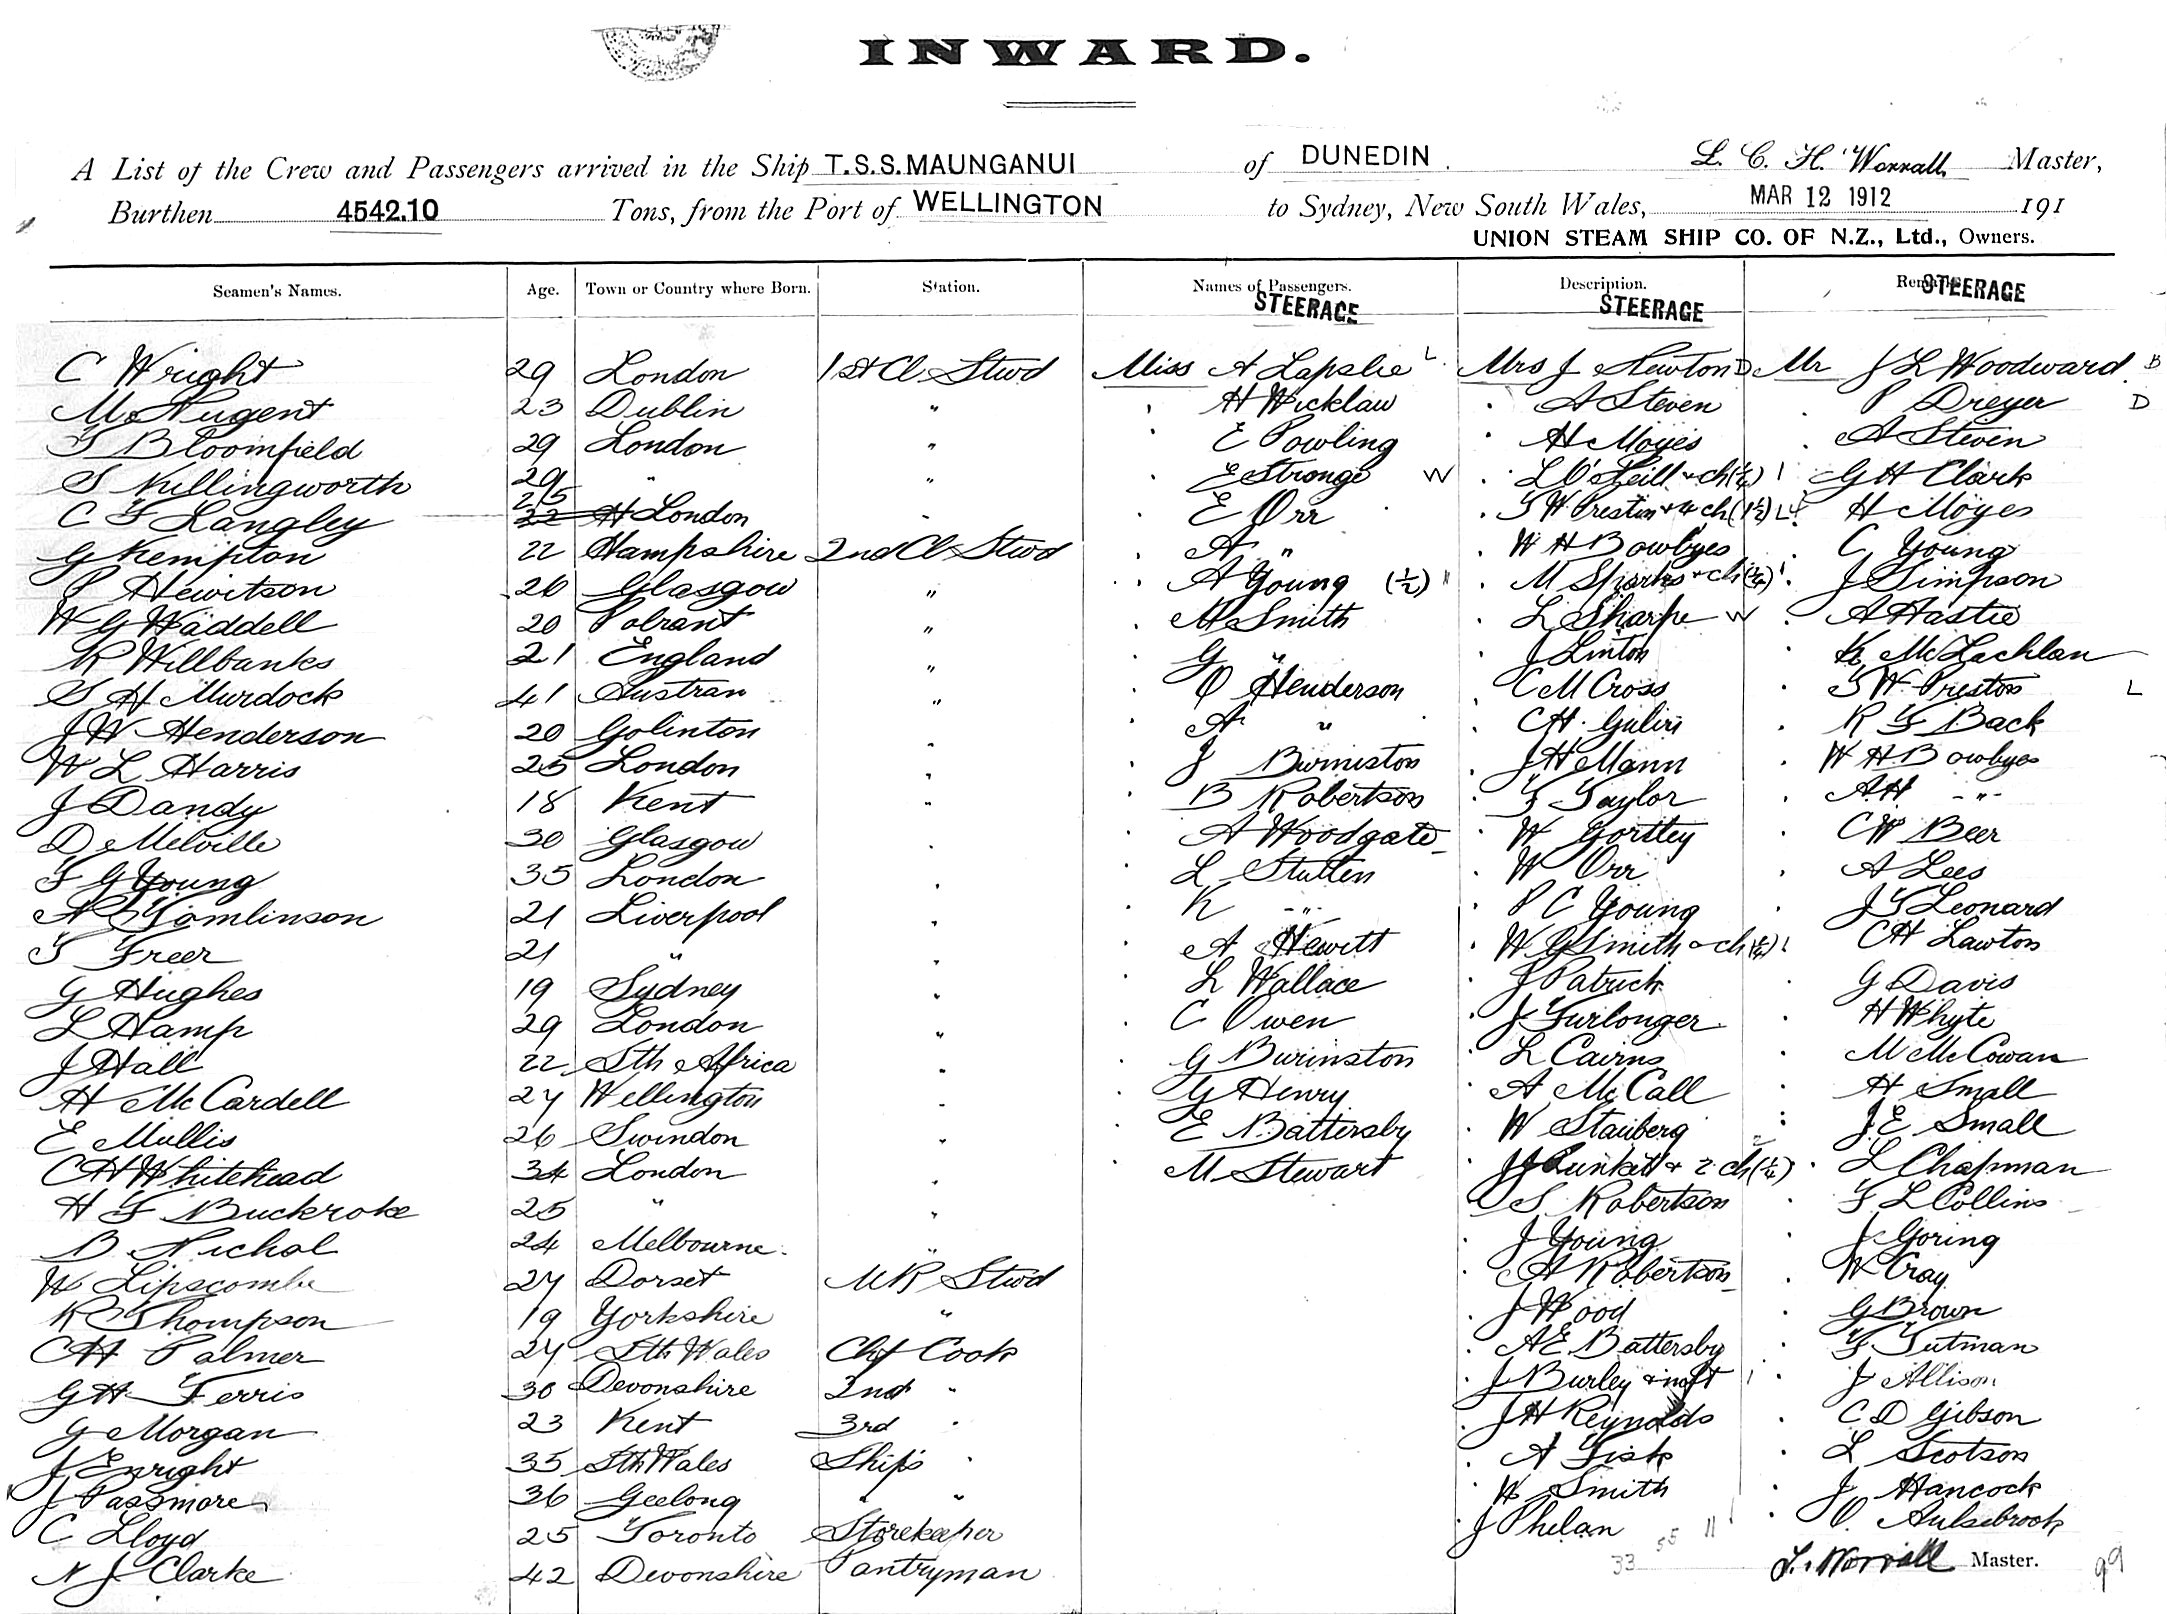 INWARD.
A List of the Crew and Passengers arrived in the Ship T.S.S. MAUNGANUI of DUNEDIN. L. C. H. Worrall Master,
Burthen 4542.10 Tons, from the Port of WELLINGTON to Sydney, New South Wales, MAR 12 1912 191
UNION STEAM SHIP CO. OF N.Z., Ltd., Owners.
Seamen's Names. Age. Town or Country where Born. Station. Names of Passengers. Description. Remarks
STEERAGE STEERAGE STEERAGE
C Wright 29 London 1st Cl Stwd Miss A Lapslie L Mrs J Newton D Mr J L Woodward B
M Nugent 23 Dublin " H Wicklaw A Steven P Dreyer D
T Bloomfield 29 London " E Powling H Moyes A Steven
S Killingworth 29 " " E Stronge W L O'Neill & ch (1/4) G H Clark
C F Langley 25 London " E Orr T W Preston & 4 ch (1 1/2) L H Moyes
G Kempton 22 Hampshire 2nd Cl Stwd A " W H Bowbyes C Young
P Hewitson 26 Glasgow " A Young (1/2) " M Sparks & ch (1/4) J Simpson
W G Waddell 20 Polrant " M Smith L Sharpe W A Hastie
R Willbanks 21 England " G " J Linton K McLachlan
S H Murdock 41 Austran " O Henderson C M Cross T W Preston L
J W Henderson 20 Golinton " A " C H R F Back
W L Harris 25 London " J Burniston J H Mann W H Bowbyes
J Dandy 18 Kent " B Robertson F Taylor A H "
D Melville 30 Glasgow " A Woodgate W Gortley C W Beer
F G Young 35 London " L Stutten W Orr A Lees
A Tomlinson 21 Liverpool " K " P C Young J T Leonard
T Freer 21 " " A Hewitt W G Smith & ch (1/4) C H Lawton
G Hughes 19 Sydney " L Wallace J Patrick G Davis
L Hamp 29 London " C Owen J Furlonger H Whyte
J Hall 22 Sth Africa " G Burinston L Cairns M McCowan
H McCardell 27 Wellington " G Henry A McCall H Small
E Mullis 26 Swindon " E Battersby W Stauberg J E Small
C H Whitehead 34 London " M Stewart J J Lunkett & 2 ch (1/4) L Chapman
H F Buckroke 25 " " S Robertson F L Collins
B Nichol 24 Melbourne " J Young J Goring
W Lipscombe 27 Dorset M R Stwd A Robertson W Cray
R Thompson 19 Yorkshire " J Wood G Brown
C H Palmer 27 Sth Wales Chf Cook A E Battersby F Tutman
G H Ferris 30 Devonshire 2nd " J Burley & inft J Allison
G Morgan 23 Kent 3rd " J H Reynolds C D Gibson
J Enright 35 Sth Wales Ship's " A Fisk L Scotson
J Passmore 36 Geelong " " W Smith J Hancock
C Lloyd 25 Toronto Storekeeper J Phelan 55 11 O. Aulsebrook
N J Clarke 42 Devonshire Pantryman 33 L. Worrall Master. 99